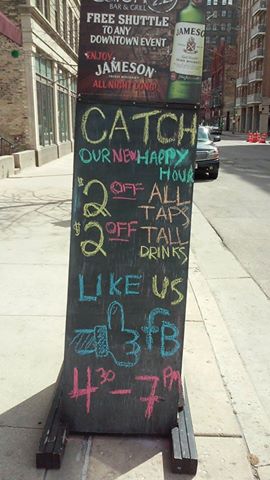 BAR & GRILL
FREE SHUTTLE
TO ANY
DOWNTOWN EVENT
ENJOY
JAMESON
ALL NIGHT LONG!
JAMESON
CATCH
OUR NEW HAPPY
HOUR
$2 OFF ALL
TAPS
$2 OFF TALL
DRINKS
LIKE US
fB
4³⁰-7PM